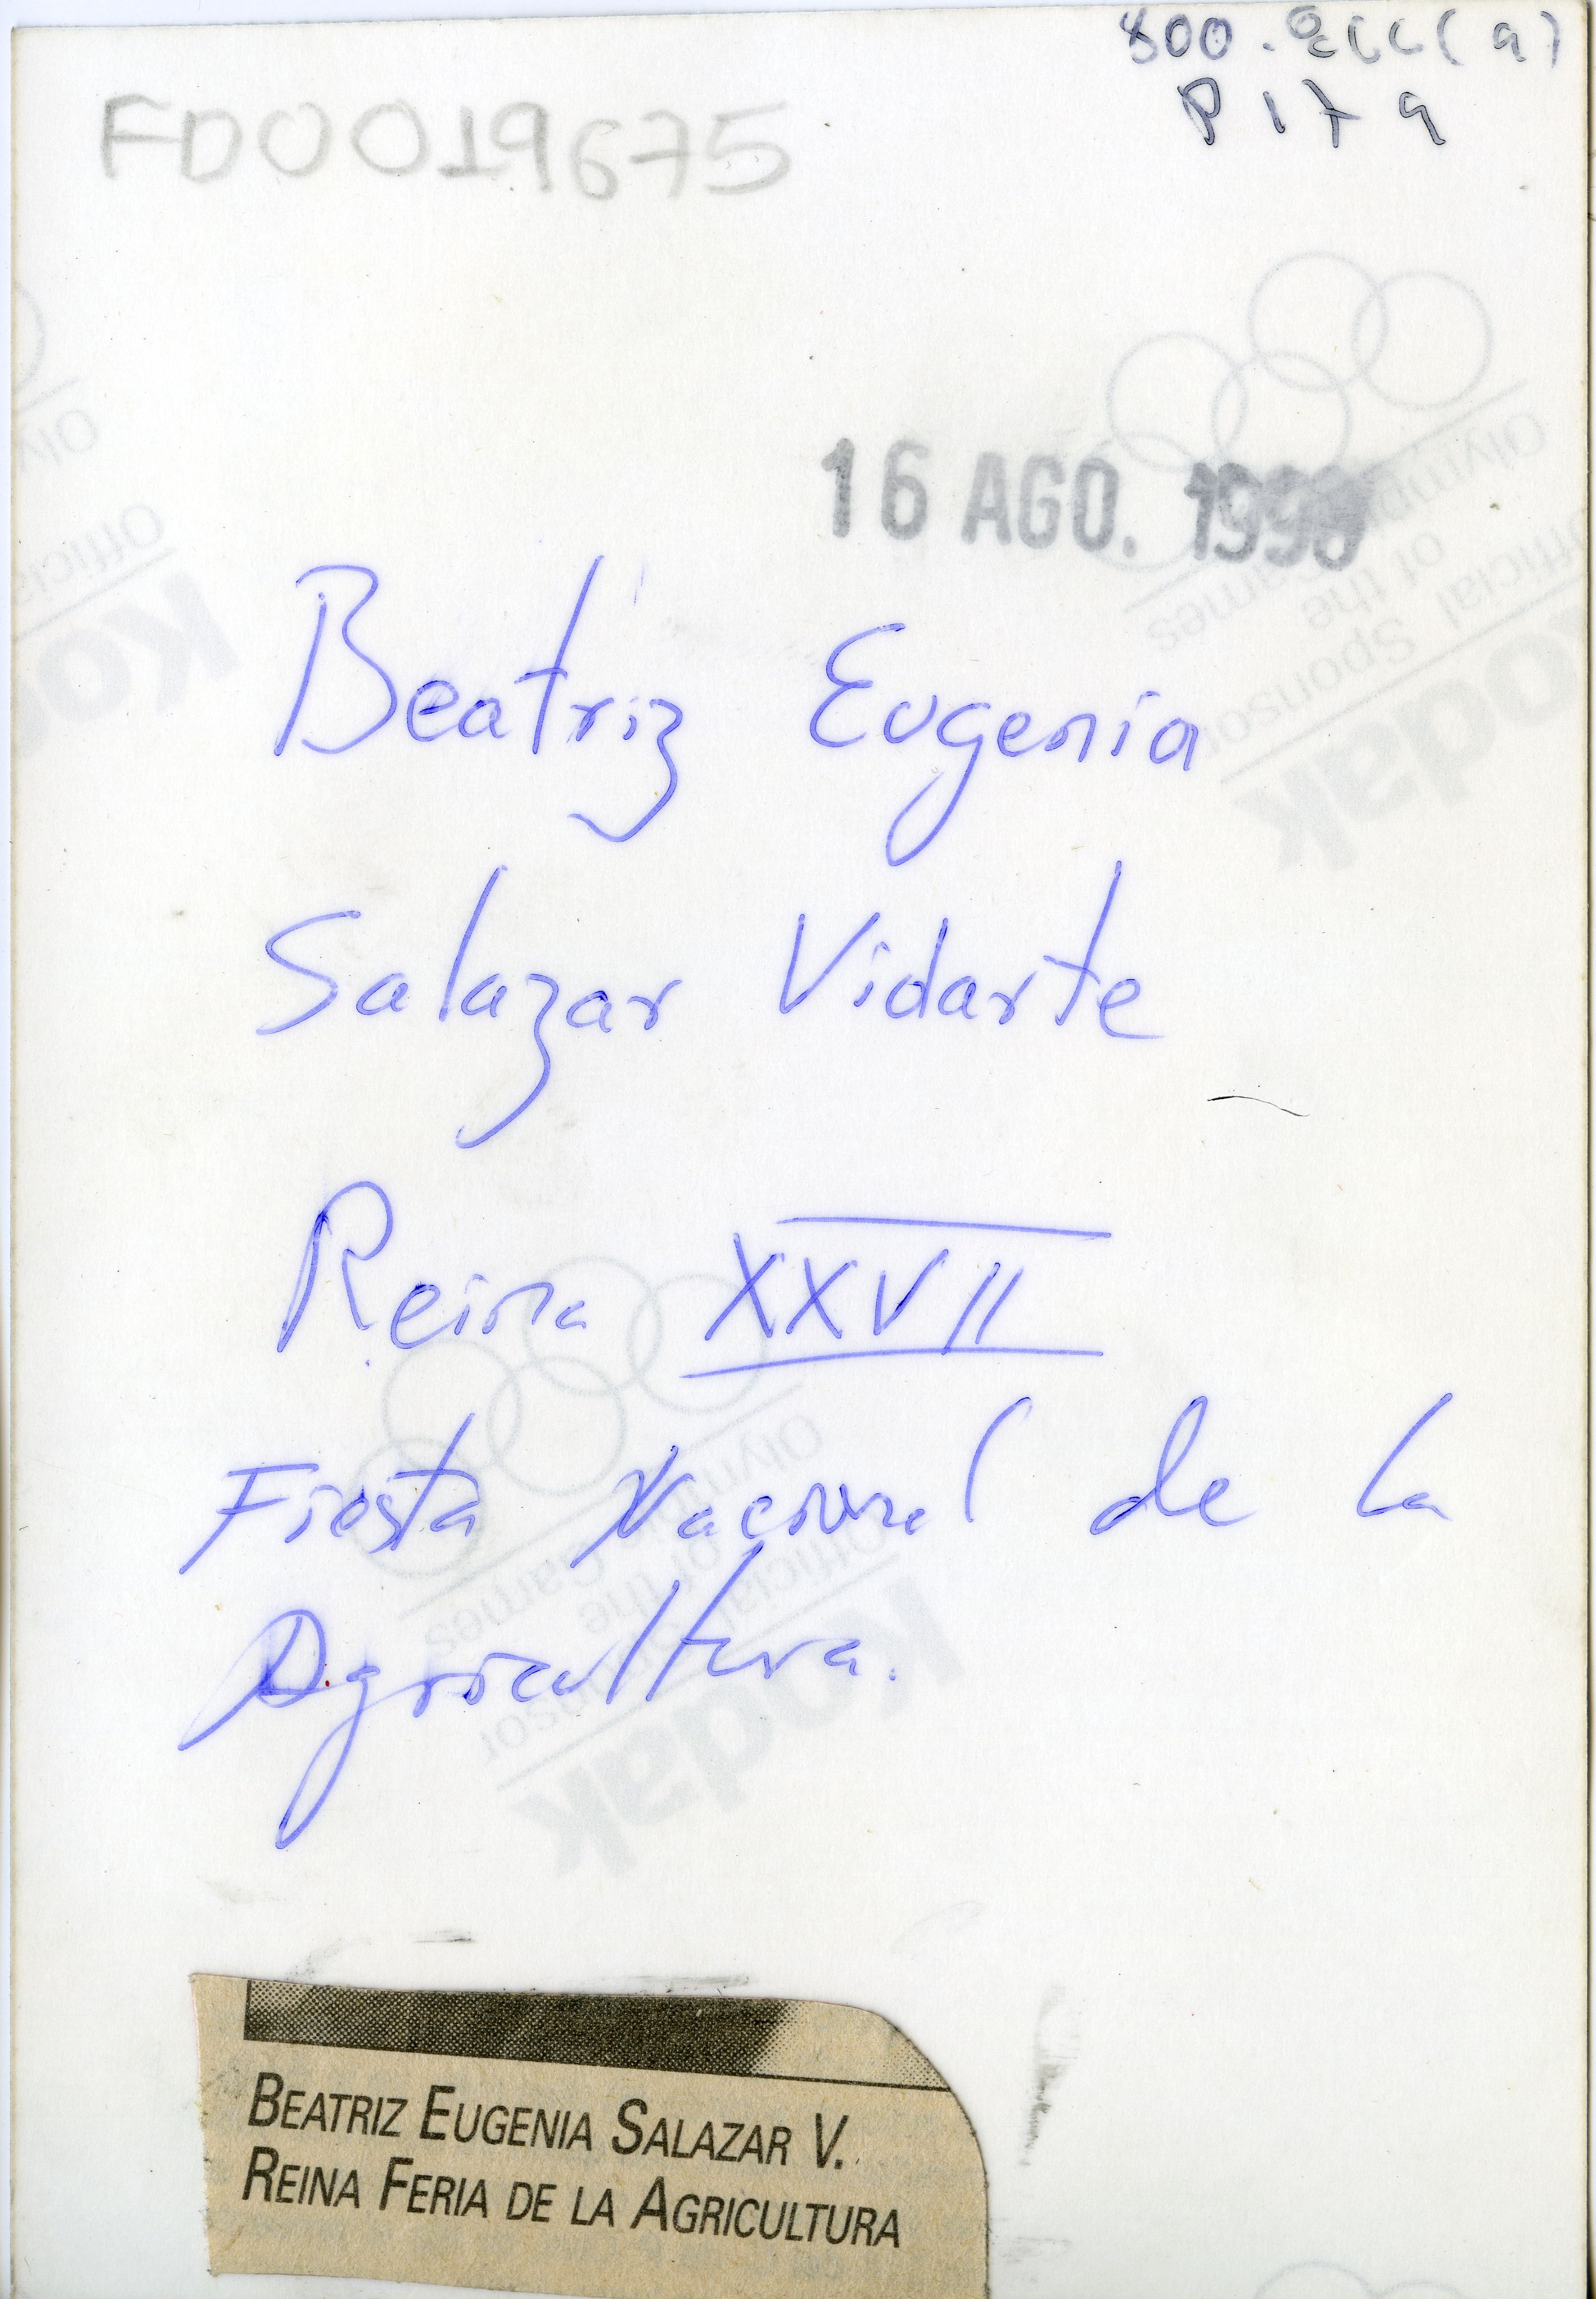 FD0019675
P179
16 AGO.
Beatriz Eugenia
Salazar Vidarte
Reina XXVII
Fiesta Nacional de la
Agricultura.
Olympic Games
Official Sponsor
of the
Kodak
BEATRIZ EUGENIA SALAZAR V.
REINA FERIA DE LA AGRICULTURA